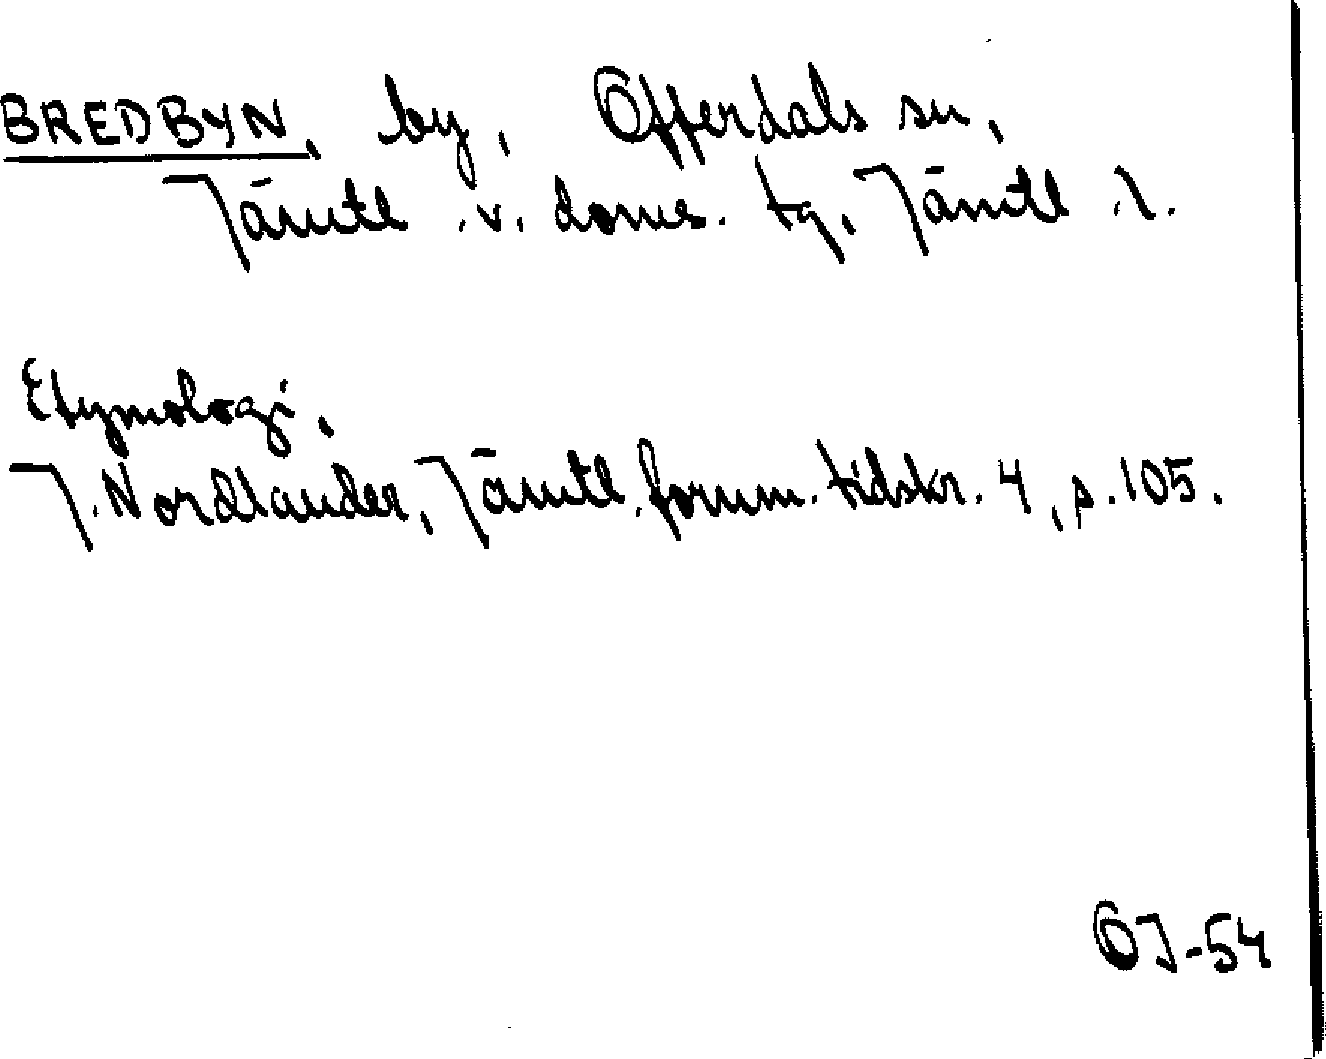 BREDBYN, by, Offerdals sn,
Jämtl. v. doms. tg, Jämtl. l.
Etymologi,
J. Nordlander, Jämtl. fornm. tidskr. 4, s. 105.
OJ-54